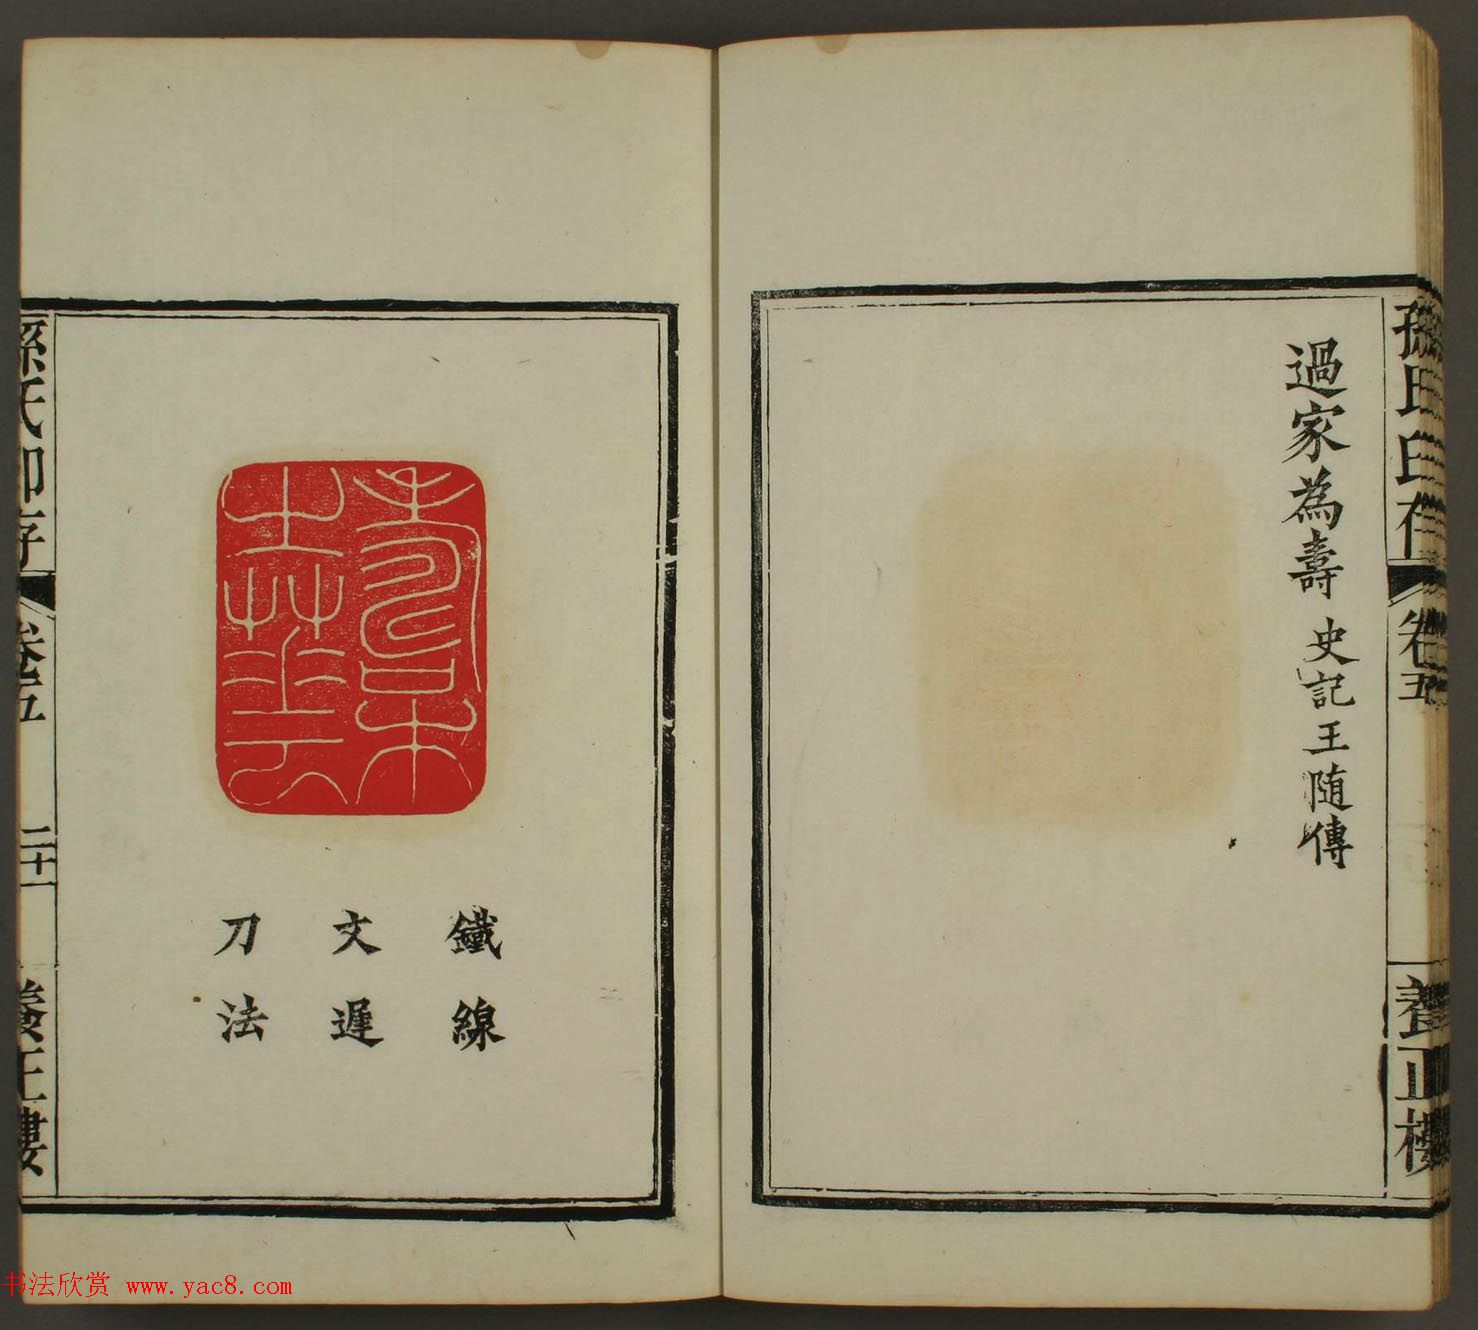 孫氏印存
卷五
養正樓
過家為壽 史記王隨傳
鐵線
文遲
刀法
孫氏印存
卷五
二十
養正樓
书法欣赏 www.yac8.com